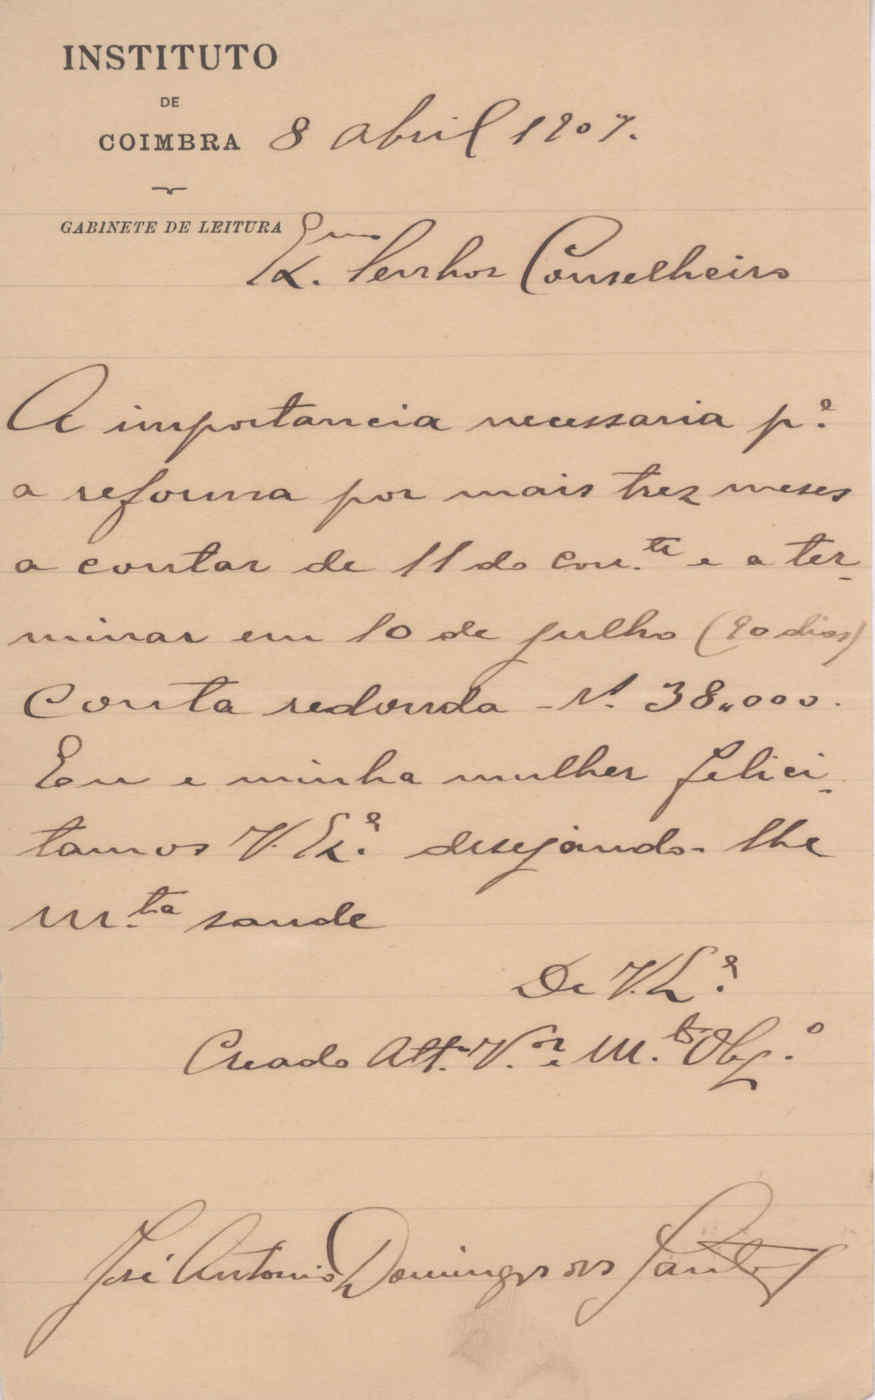 INSTITUTO
DE
COIMBRA
8 abril 1907.
GABINETE DE LEITURA
Exmo. Senhor Conselheiro
A importancia necessaria pª.
a reforma por mais trez meses
a contar de 11 do corr.te e a ter-
minar em 10 de julho (90 dias)
Conta redonda - Rs. 38,,000.
Eu e minha mulher felici-
tamos V. Exª. desejando-lhe
M.ta saude
De V. Eª.
Creado Att.º V.or e M.to Obg.º
José Antonio Domingos dos Santos